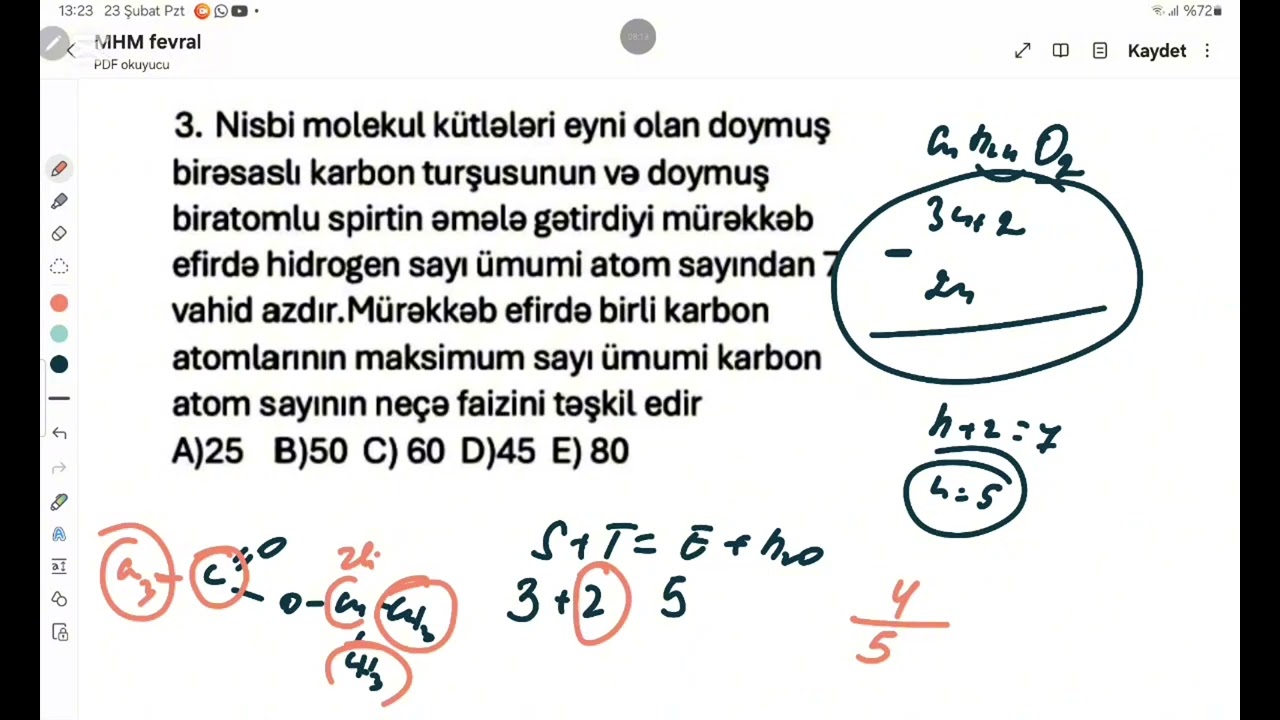 13:23 23 Şubat Pzt • %72
MHM fevral
PDF okuyucu
08:14
Kaydet
3. Nisbi molekul kütlələri eyni olan doymuş
birəsaslı karbon turşusunun və doymuş
biratomlu spirtin əmələ gətirdiyi mürəkkəb
efirdə hidrogen sayı ümumi atom sayından 7
vahid azdır.Mürəkkəb efirdə birli karbon
atomlarının maksimum sayı ümumi karbon
atom sayının neçə faizini təşkil edir
A)25 B)50 C) 60 D)45 E) 80
CnH2nO2
3n+2
-
2n
n+2=7
n=5
S+T=E+H2O
3+2 5
CH3-C
O
O-CH-CH3
CH3
4
5